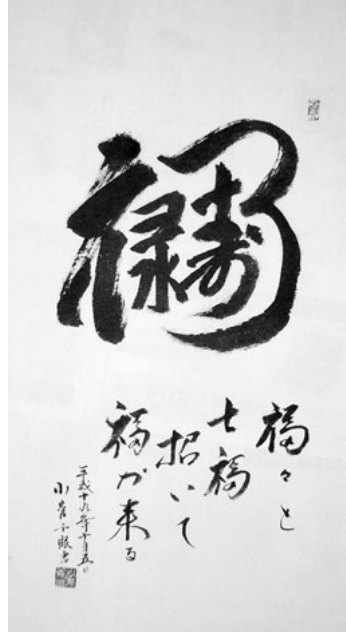 福禄寿
福々と
七福
招いて
福が来る
平成十九年十月五日